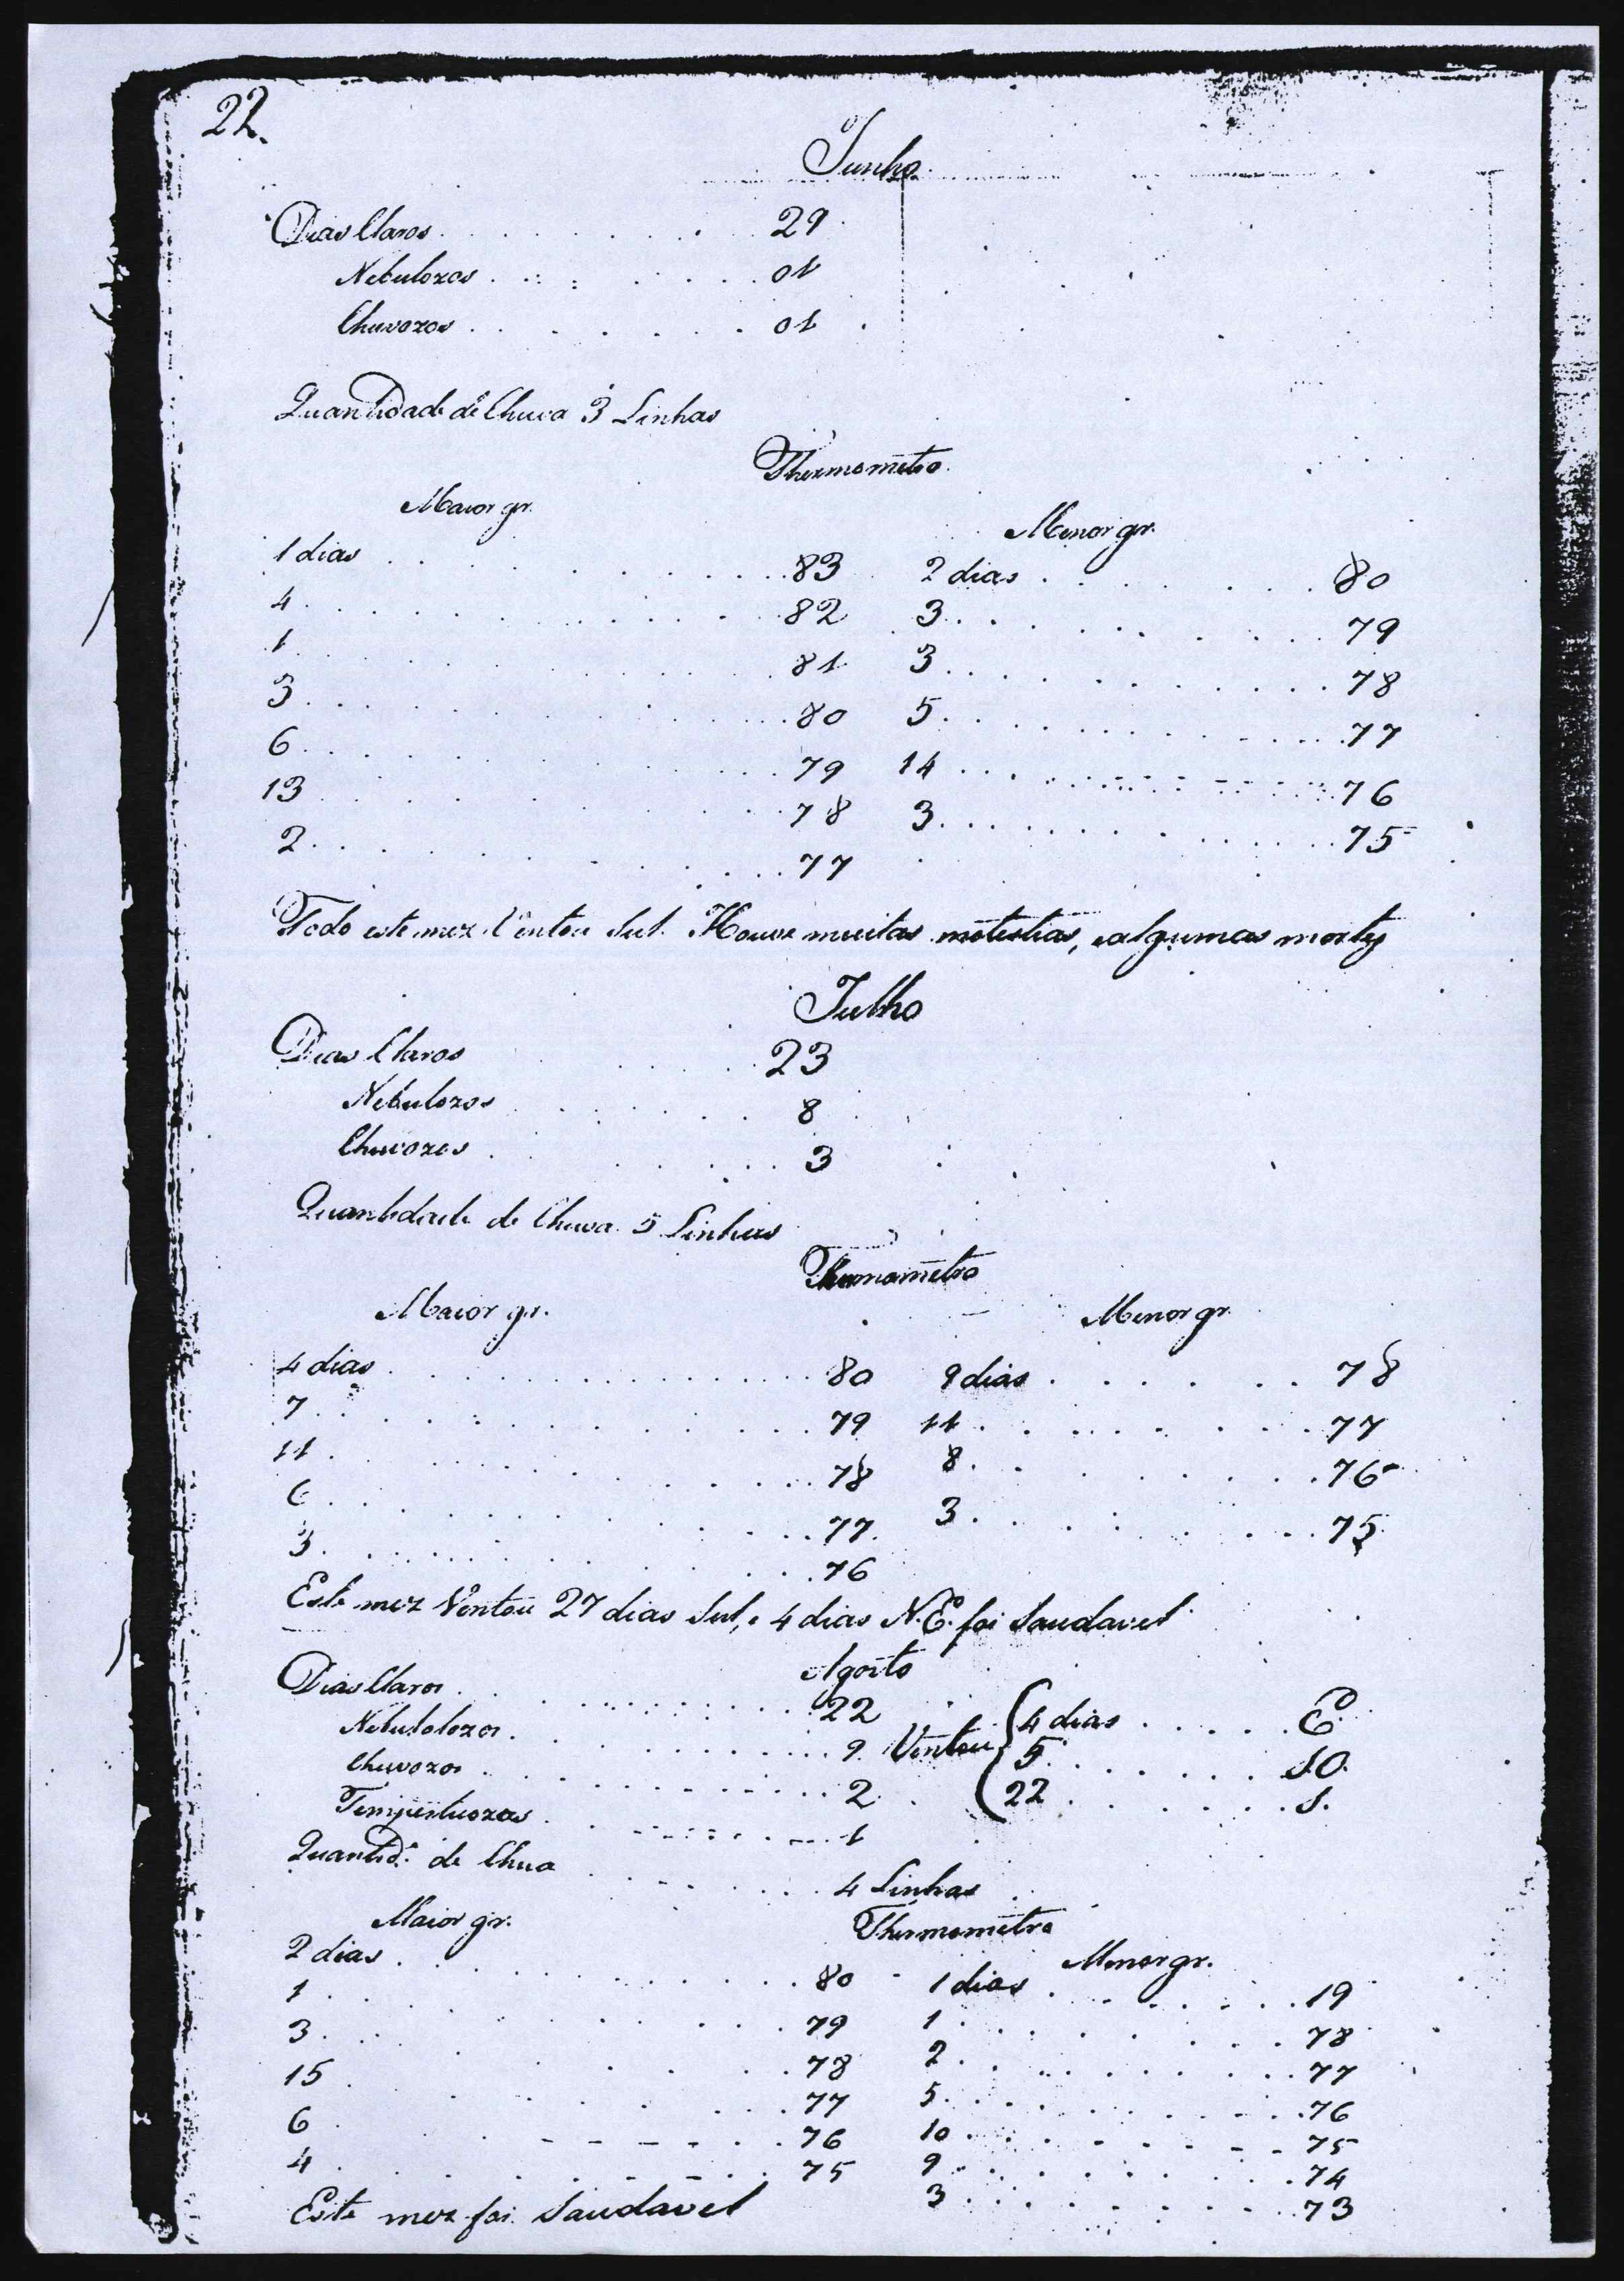 22.
Junho
Dias Claros . . . . . . 29
Nebulozos . . . . . . 01
Chuvozos . . . . . . 01
Quantidade de Chuva 3 Linhas
Thermometro
Maior gr. Menor gr.
1 dias . . . . . . 83 2 dias . . . . . . 80
4 . . . . . . 82 3 . . . . . . 79
1 . . . . . . 81 3 . . . . . . 78
3 . . . . . . 80 5 . . . . . . 77
6 . . . . . . 79 14 . . . . . . 76
13 . . . . . . 78 3 . . . . . . 75
2 . . . . . . 77
Todo este mez Ventou Sul. Houve muitas molestias, e algumas mortes
Julho
Dias Claros . . . . . . 23
Nebulozos . . . . . . 8
Chuvozos . . . . . . 3
Quantidade de Chuva 5 Linhas
Thermometro
Maior gr. Menor gr.
4 dias . . . . . . 80 9 dias . . . . . . 78
7 . . . . . . 79 11 . . . . . . 77
11 . . . . . . 78 8 . . . . . . 76
6 . . . . . . 77 3 . . . . . . 75
3 . . . . . . 76
Este mez Ventou 27 dias Sul, e 4 dias N.E. foi Saudavel
Agosto
Dias Claros . . . . . . 22 Ventou 4 dias . . . . . . E.
Nebulolozos . . . . . . 9 5 . . . . . . S.O.
Chuvozos . . . . . . 2 22 . . . . . . S.
Tempestuozos . . . . . . 1
Quantid.e de Chua . . . . . . 4 Linhas
Thermometro
Maior gr. Menor gr.
2 dias . . . . . . 80 1 dias . . . . . . 19
1 . . . . . . 79 1 . . . . . . 78
3 . . . . . . 78 2 . . . . . . 77
15 . . . . . . 77 5 . . . . . . 76
6 . . . . . . 76 10 . . . . . . 75
4 . . . . . . 75 9 . . . . . . 74
3 . . . . . . 73
Este mez foi Saudavel